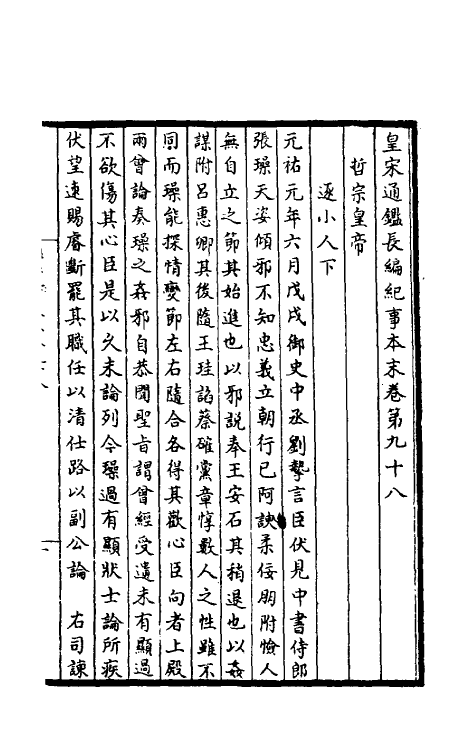 皇宋通鑑長編紀事本末卷第九十八
哲宗皇帝
逐小人下
元祐元年六月戊戌御史中丞劉摯言臣伏見中書侍郎
張璪天姿傾邪不知忠義立朝行已阿諛柔佞朋附憸人
無自立之節其始進也以邪説奉王安石其稍退也以姦
謀附吕惠卿其後隨王珪諂蔡確黨章惇數人之性雖不
同而璪能探情變節左右隨合各得其歡心臣向者上殿
兩曾論奏璪之姦邪自恭聞聖旨謂曾經受遺未有顯過
不欲傷其心臣是以久未論列今璪過有顯狀士論所疾
伏望速賜睿斷罷其職任以清仕路以副公論 右司諫